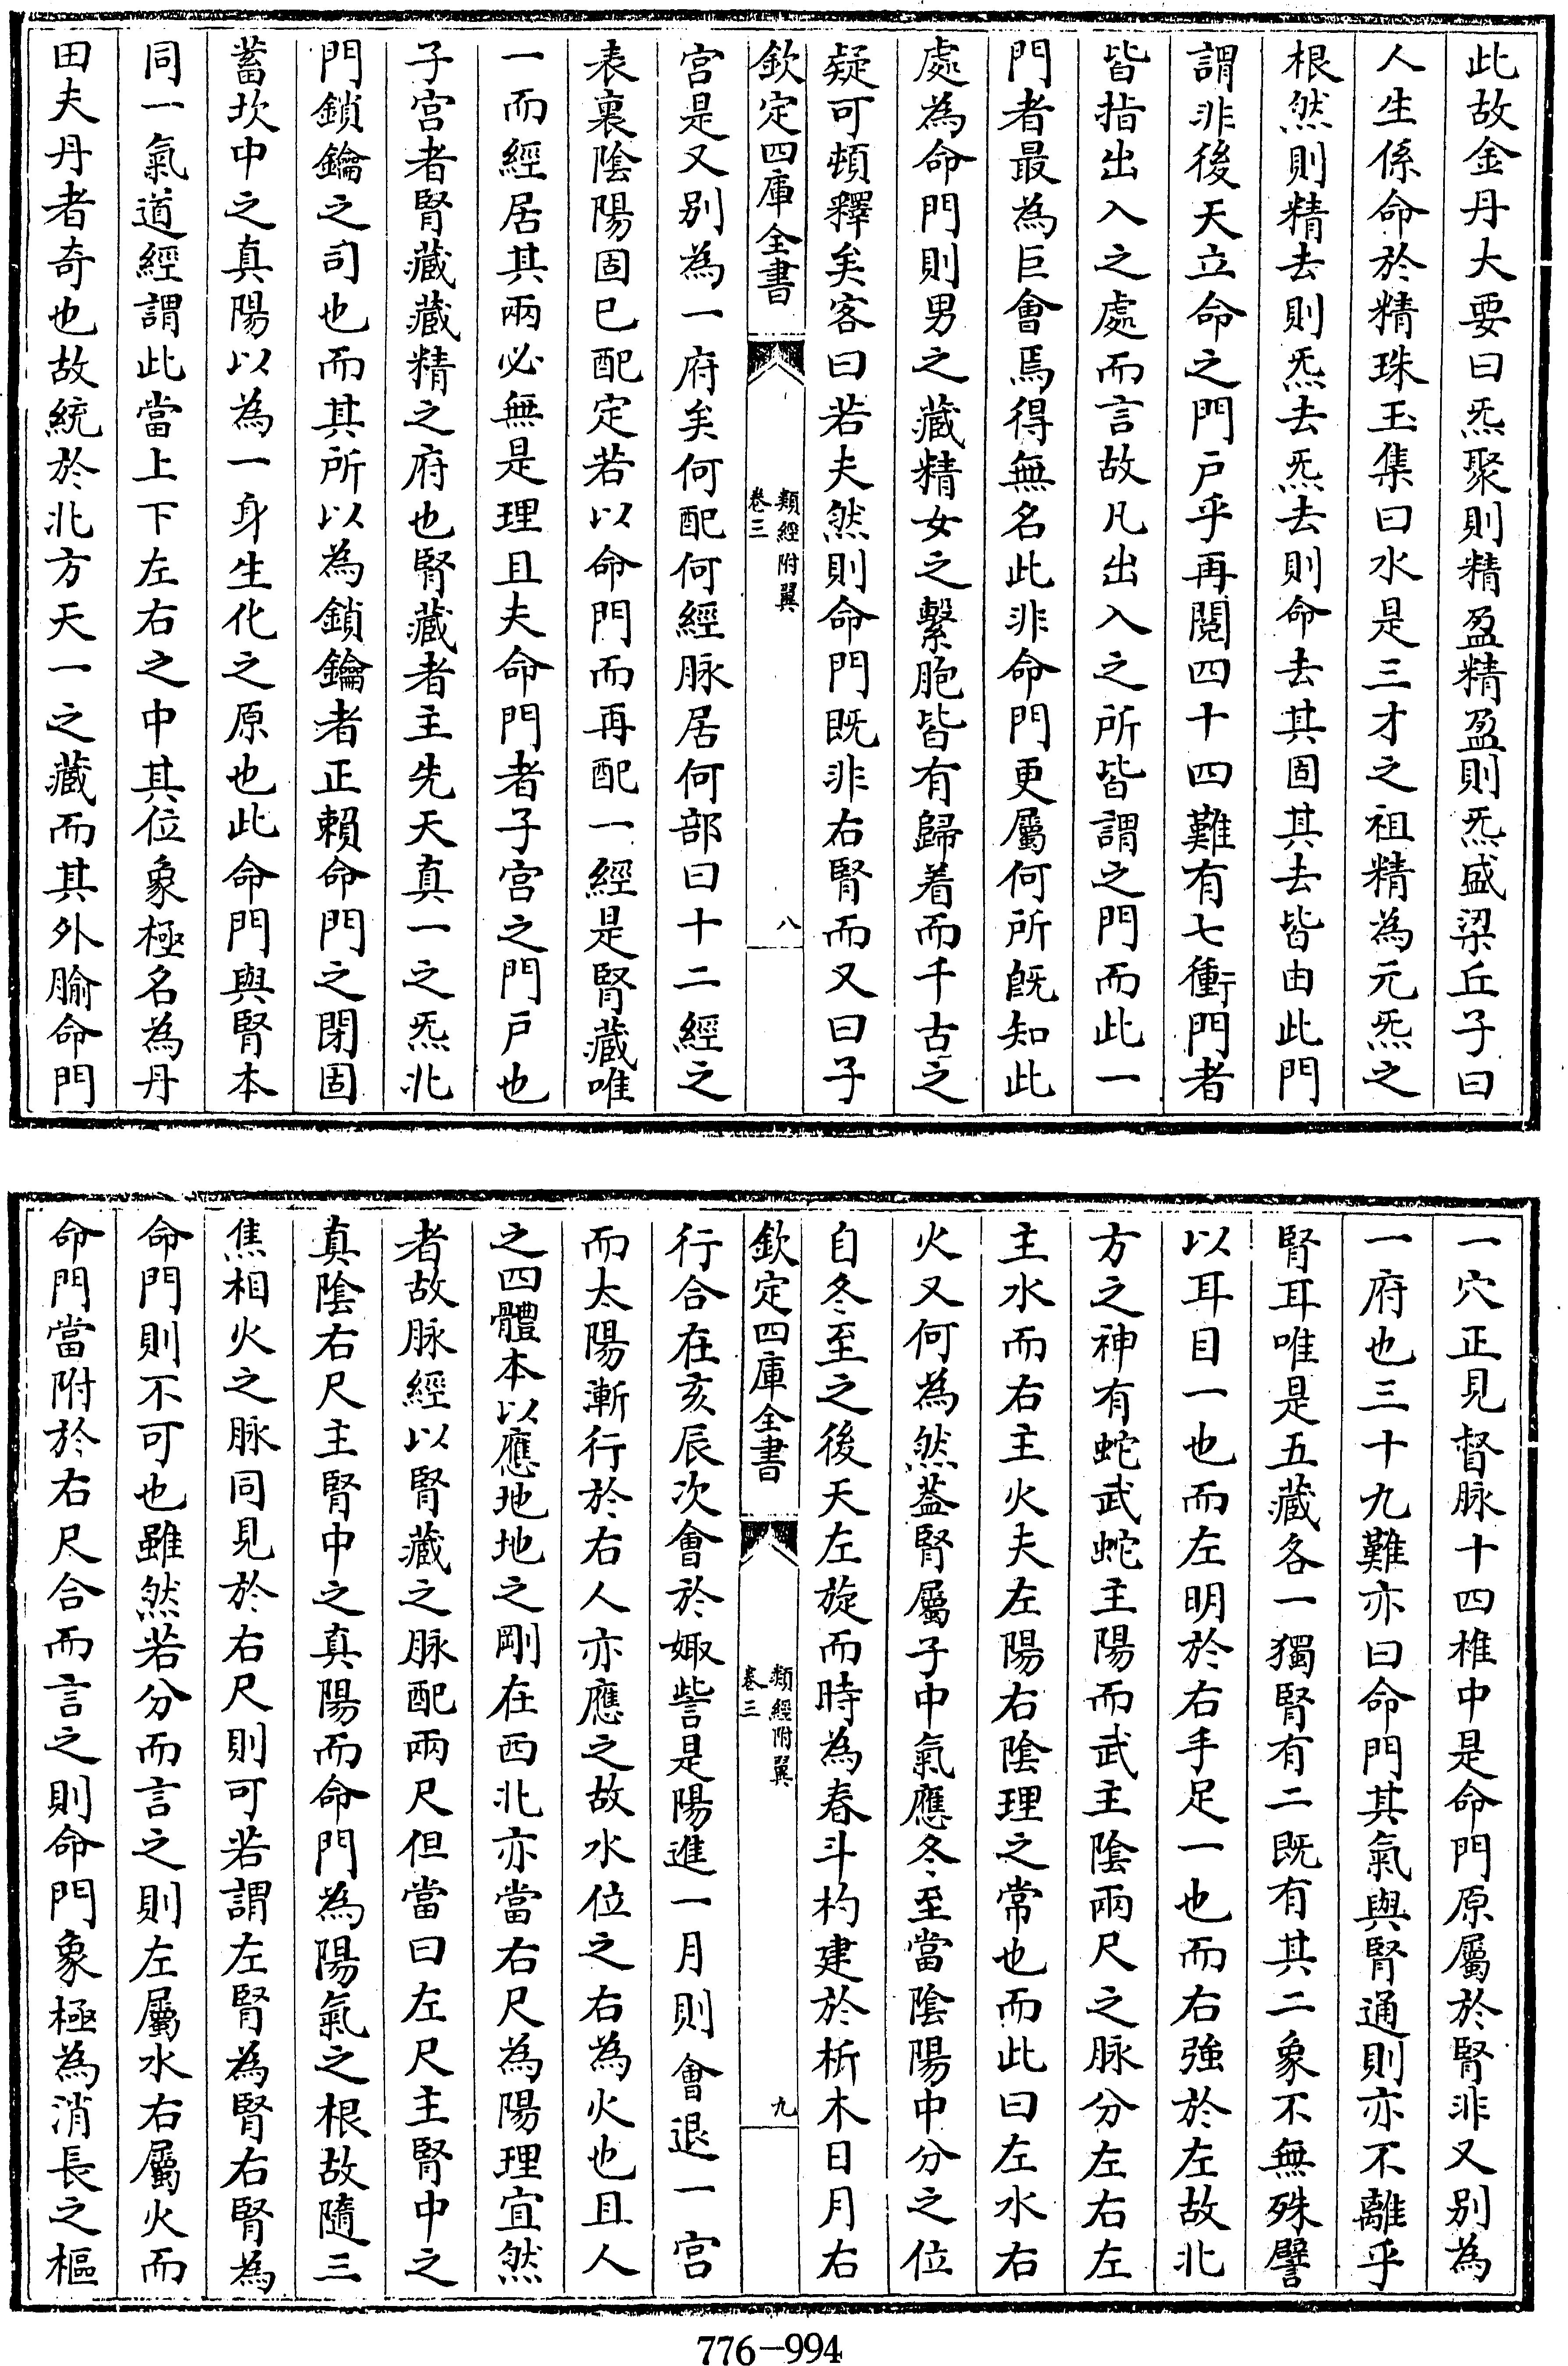 此故金丹大要曰炁聚則精盈精盈則炁盛梁丘子曰
人生係命於精珠玉集曰水是三才之祖精為元炁之
根然則精去則炁去炁去則命去其固其去皆由此門
謂非後天立命之門戶乎再閱四十四難有七衝門者
皆指出入之處而言故凡出入之所皆謂之門而此一
門者最為巨會焉得無名此非命門更屬何所既知此
處為命門則男之藏精女之繫胞皆有歸着而千古之
疑可頓釋矣客曰若夫然則命門既非右腎而又曰子
欽定四庫全書
類經附翼
卷三
八
宮是又別為一府矣何配何經脉居何部曰十二經之
表裏陰陽固已配定若以命門而再配一經是腎藏唯
一而經居其兩必無是理且夫命門者子宮之門戶也
子宮者腎藏藏精之府也腎藏者主先天真一之炁北
門鎖鑰之司也而其所以為鎖鑰者正賴命門之閉固
蓄坎中之真陽以為一身生化之原也此命門與腎本
同一氣道經謂此當上下左右之中其位象極名為丹
田夫丹者奇也故統於北方天一之藏而其外腧命門
一穴正見督脉十四椎中是命門原屬於腎非又別為
一府也三十九難亦曰命門其氣與腎通則亦不離乎
腎耳唯是五藏各一獨腎有二既有其二象不無殊譬
以耳目一也而左明於右手足一也而右強於左故北
方之神有蛇武蛇主陽而武主陰兩尺之脉分左右左
主水而右主火夫左陽右陰理之常也而此曰左水右
火又何為然葢腎屬子中氣應冬至當陰陽中分之位
自冬至之後天左旋而時為春斗杓建於析木日月右
欽定四庫全書
類經附翼
卷三
九
行合在亥辰次會於娵訾是陽進一月則會退一宮
而太陽漸行於右人亦應之故水位之右為火也且人
之四體本以應地地之剛在西北亦當右尺為陽理宜然
者故脉經以腎藏之脉配兩尺但當曰左尺主腎中之
真陰右尺主腎中之真陽而命門為陽氣之根故隨三
焦相火之脉同見於右尺則可若謂左腎為腎右腎為
命門則不可也雖然若分而言之則左屬水右屬火而
命門當附於右尺合而言之則命門象極為消長之樞
776-994